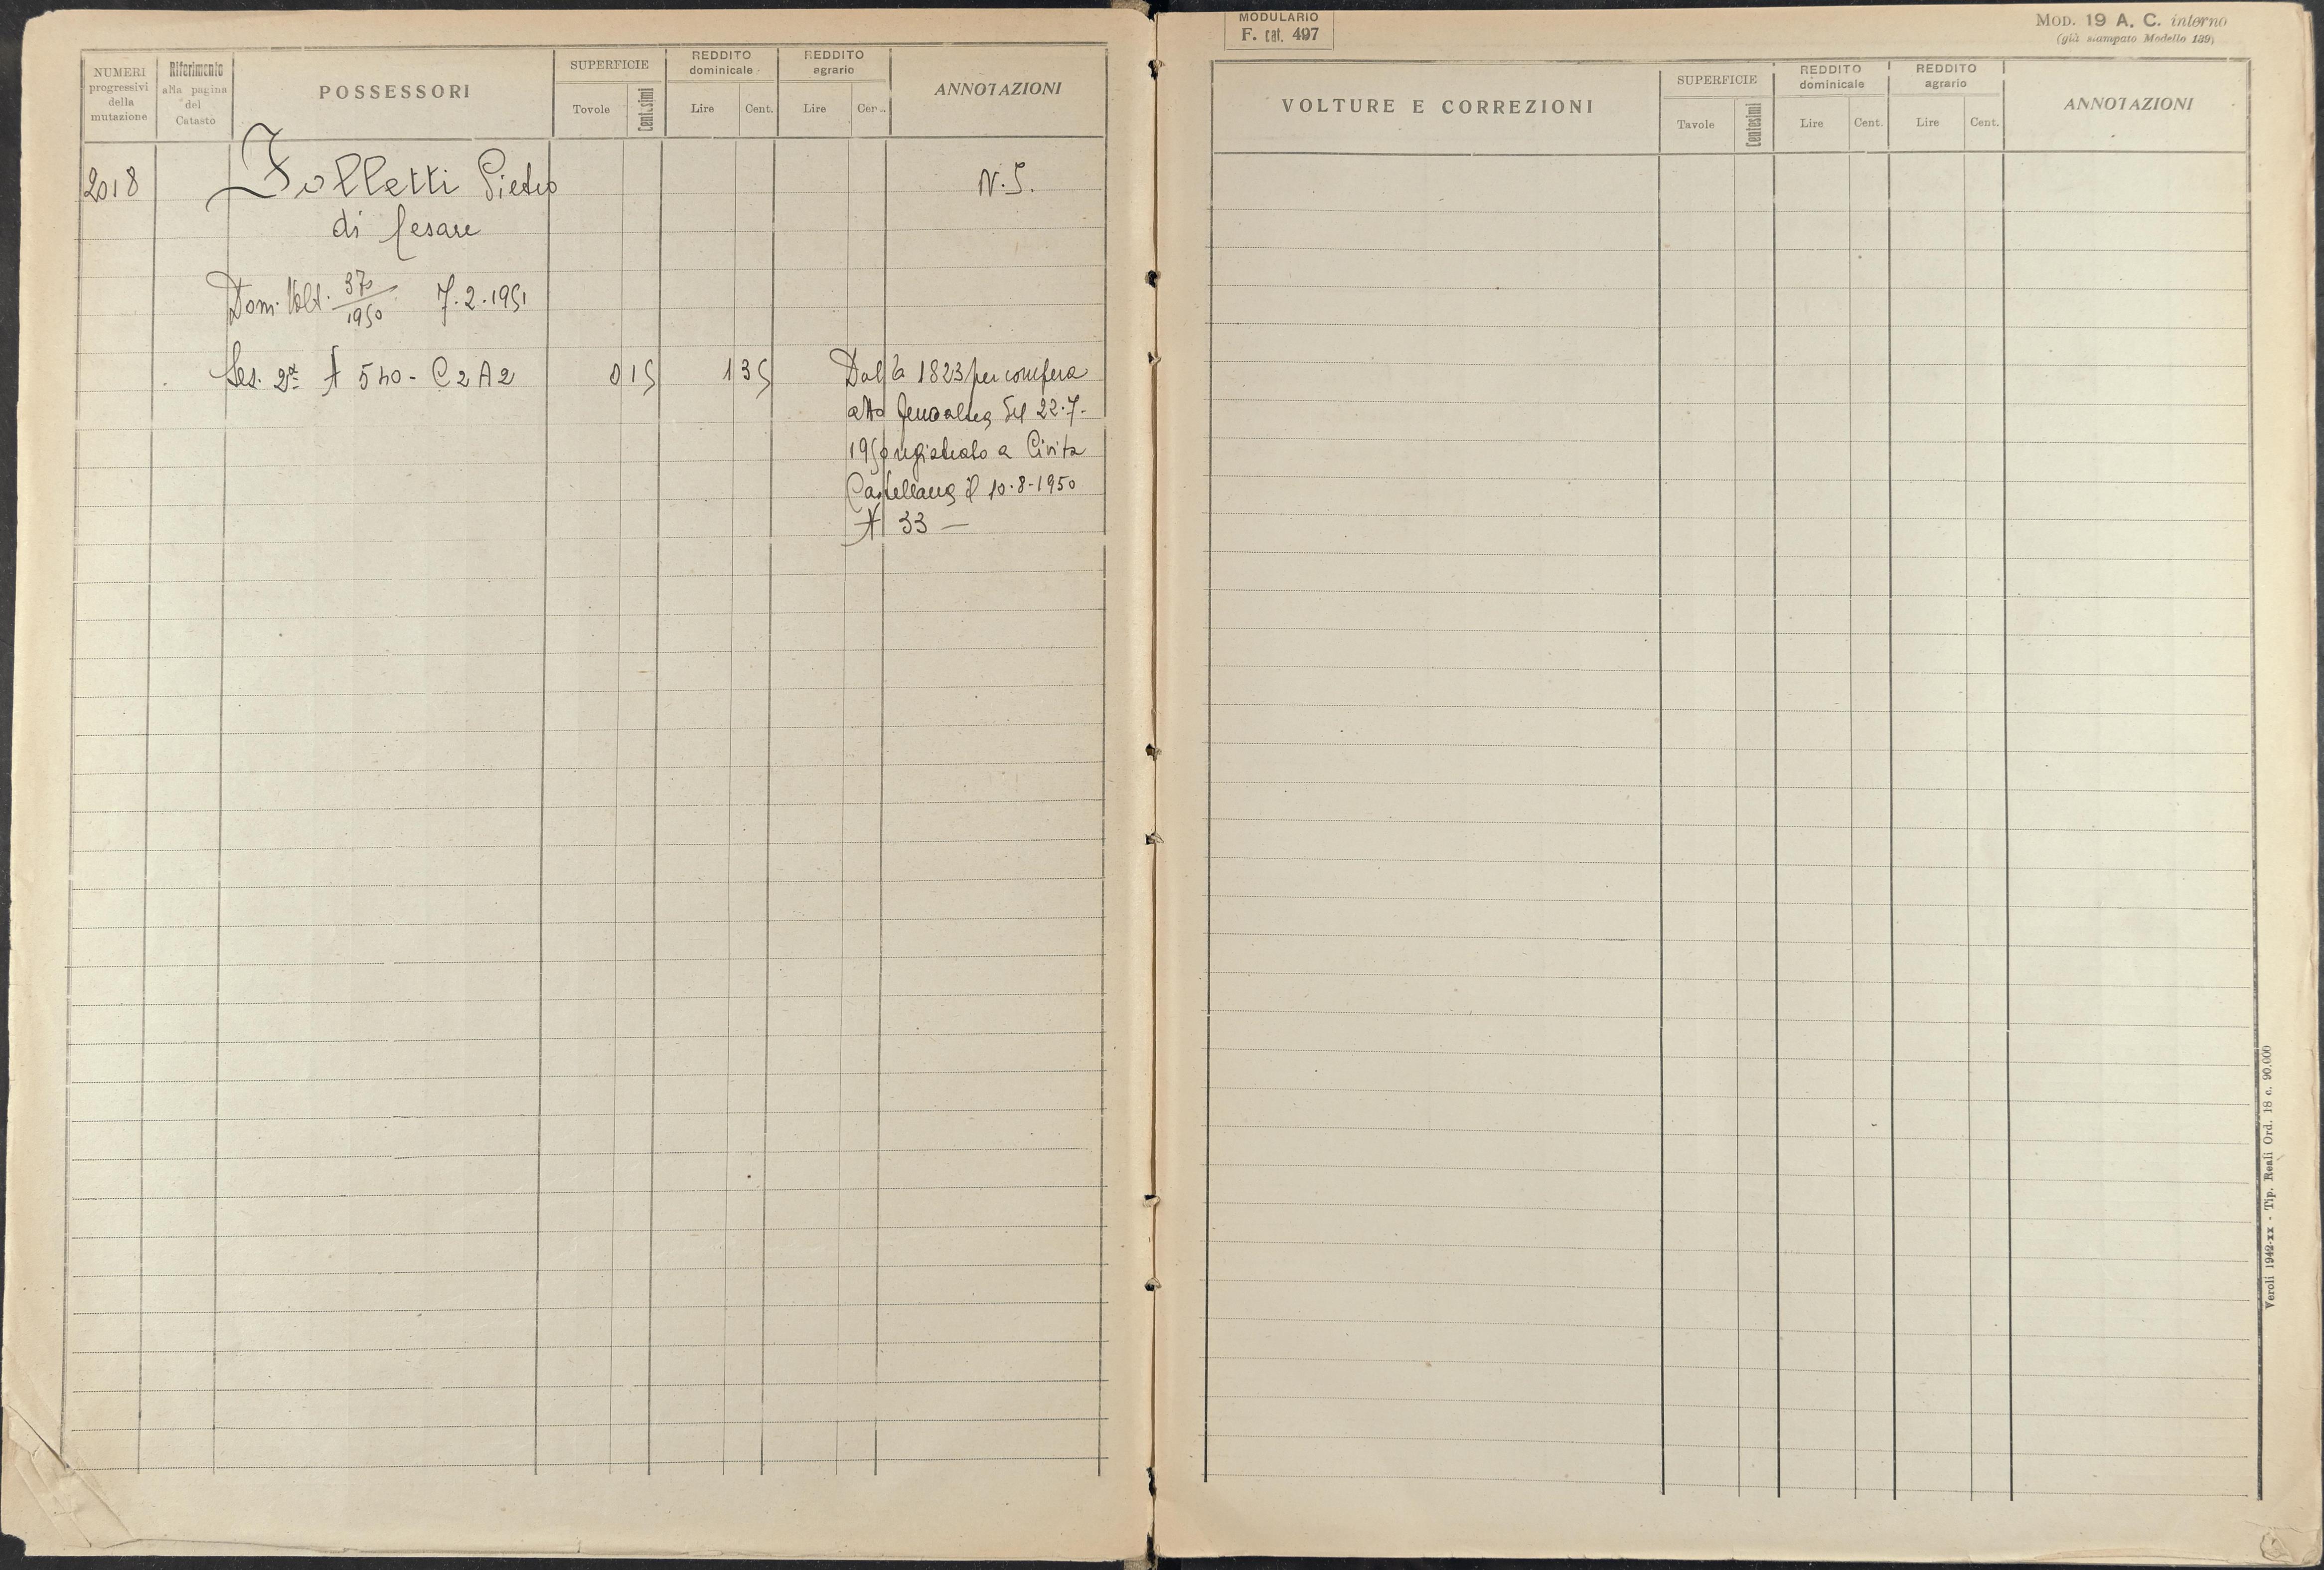 NUMERI
progressivi
della
mutazione
Riferimento
alla pagina
del
Catasto
POSSESSORI
SUPERFICIE
Tovole
Centesimi
REDDITO
dominicale
Lire
Cent.
REDDITO
agrario
Lire
Cen..
ANNOTAZIONI
2018
Folletti Pietro
N. S.
di Cesare
Dom. Volt. 370/1950 7.2.1951
Sez. 2ª N 540 - C 2 A 2
0 15
1 35
Dalla 1823 per compera
atto del 22.7.
1950 registrato a Civita
Castellana il 10-8-1950
N 33 —
MODULARIO
F. cat. 497
MOD. 19 A. C. interno
(già stampato Modello 189)
VOLTURE E CORREZIONI
SUPERFICIE
Tavole
Centesimi
REDDITO
dominicale
Lire
Cent.
REDDITO
agrario
Lire
Cent.
ANNOTAZIONI
Veroli 1942-XX - Tip. Reali Ord. 18 c. 90.000